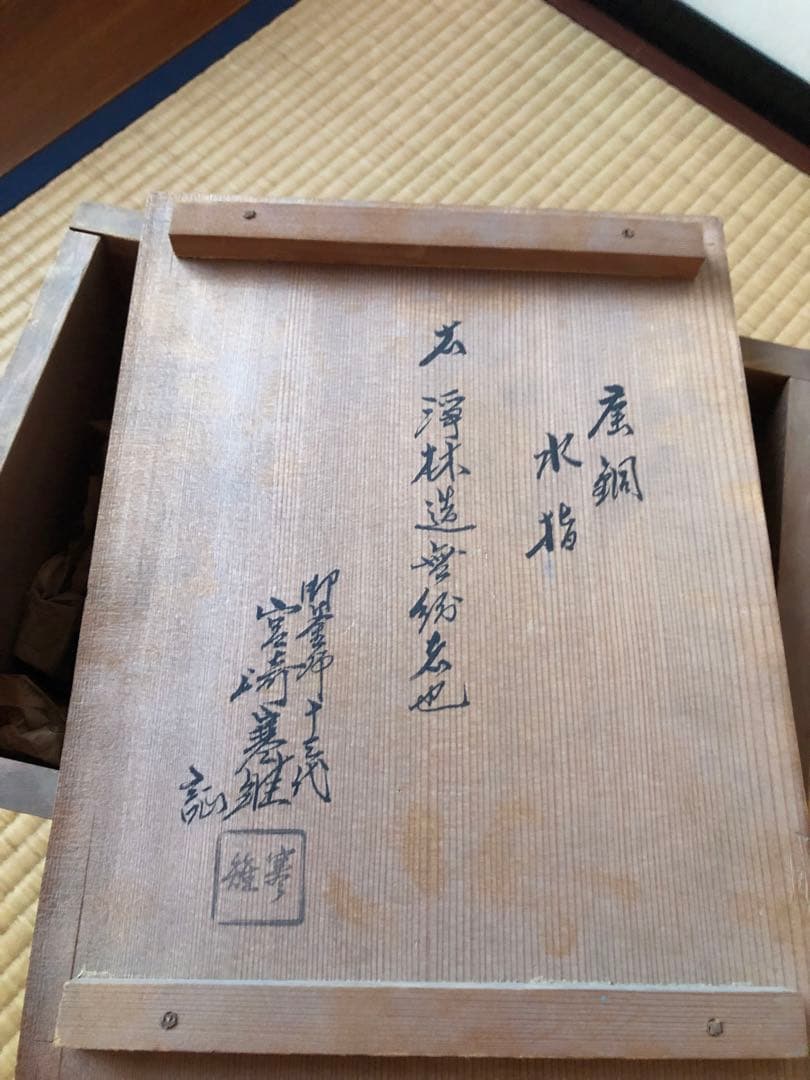 唐銅
水指
右 淨林造無紛者也
御釜師十三代
宮崎寒雉
証
寒雉